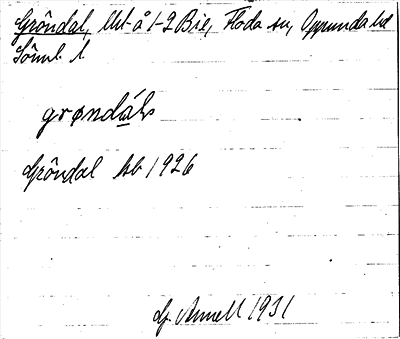 Gröndal, lht å 1-2 Bie, Floda sn, Oppunda hd
Söml. l
grøndáls
Gröndal kb 1926
Gf. Annell 1931